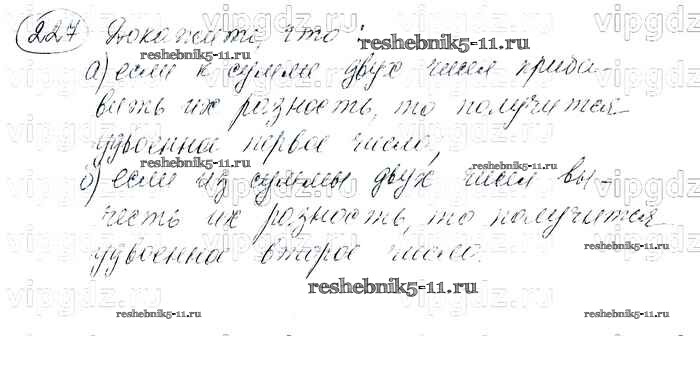 227 Докажите, что:
а) если к сумме двух чисел приба-
вить их разность, то получится
удвоенное первое число,
б) если из суммы двух чисел вы-
честь их разность, то получится
удвоенное второе число.
reshebnik5-11.ru
vipgdz.ru